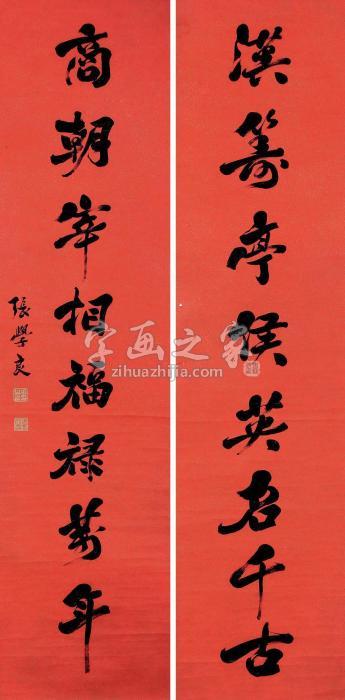 漢壽亭侯英名千古
商朝宰相福禄萬年
張學良
字画之家
zihuazhijia.com